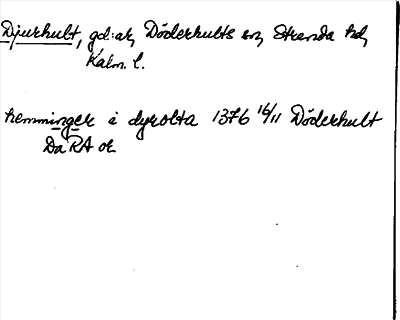 Djurhult, gd:ar, Döderhults sn, Stranda hd,
Kalm. l.
hemminger i dyrolta 1376 16/11 Döderhult
DaRA or.